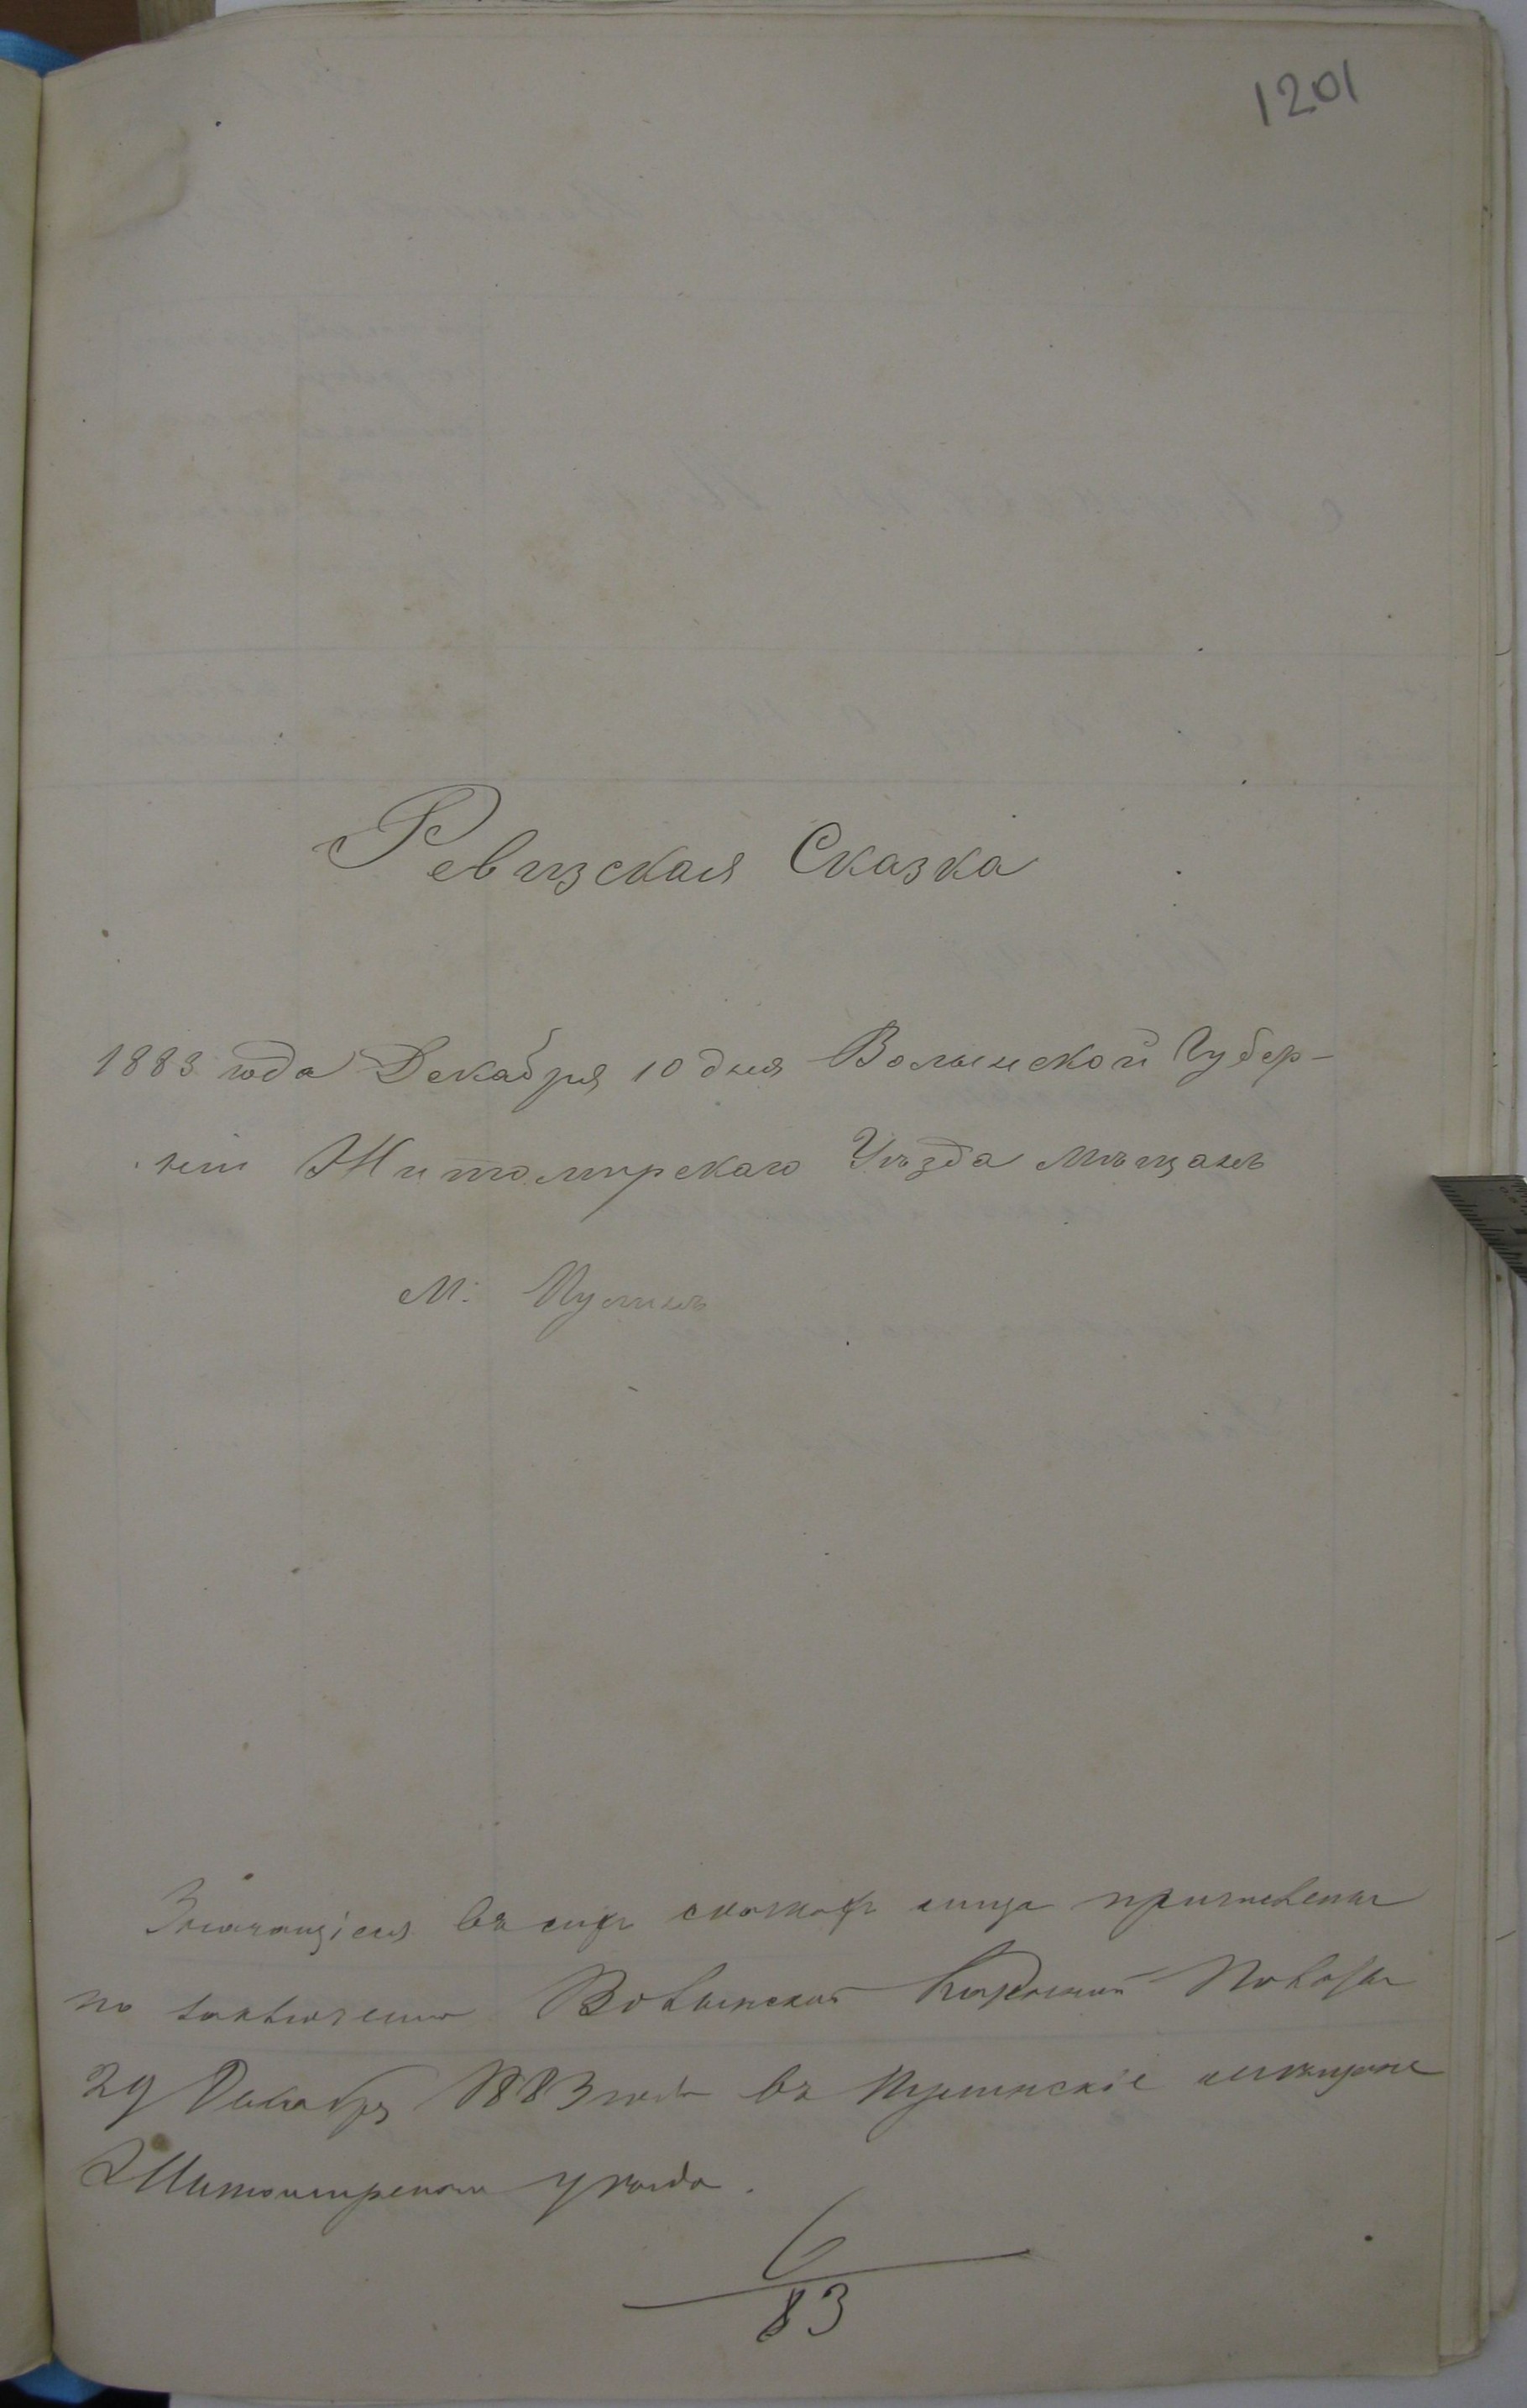 1201
Ревизская Сказка
1883 года Декабря 10 дня Волынской Губер-
ніи Житомирскаго Уѣзда мѣщанъ
М: Пулинъ
Значащіеся въ сихъ сказкахъ лица причислены
по заключенію Волынской Казенной Палаты
29 Декабря 1883 года въ Пулинскіе мѣщане
Житомирскаго уѣзда.
6
83